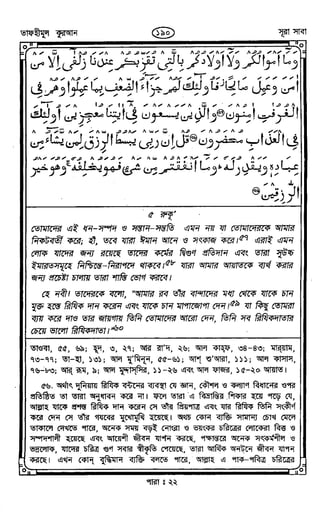 তাফহীমুল কুরআন
১৯০
সূরা সাবা
وَمَا أَمْوَالُكُمْ وَلَا أَوْلَادُكُمْ بِالَّتِي تُقَرِّبُكُمْ عِنْدَنَا زُلْفَى إِلَّا مَنْ
أَمَنَ وَعَمِلَ صَالِحًا فَأُولَئِكَ لَهُمْ جَزَاءُ الضِّعْفِ بِمَا عَمِلُوا وَهُمْ فِي
الْغُرُفَتِ أَمِنُونَ ۝ وَالَّذِينَ يَسْعَوْنَ فِي أَيْتِنَا مُعْجِزِينَ أُولَئِكَ
فِي الْعَذَابِ مُحْضَرُونَ ۝ قُلْ إِنَّ رَبِّي يَبْسُطُ الرِّزْقَ لِمَنْ يَّشَاءُ مِنْ
عِبَادِهِ وَيَقْدِرُ لَهُ ، وَمَا أَنْفَقْتُمْ مِنْ شَيْءٍ فَهُوَ يُخْلِفُهُ ، وَهُوَ خَيْرُ
الرَّزِقِينَ ۝
৫ রুকূ'
তোমাদের এই ধন-সম্পদ ও সন্তান-সন্ততি এমন নয় যা তোমাদেরকে আমার
নিকটবর্তী করে; হাঁ, তবে যারা ঈমান আনে ও সৎকাজ করে। এরাই এমন
লোক যাদের জন্য রয়েছে তাদের কর্মের দ্বিগুণ প্রতিদান এবং তারা সুউচ্চ
ইমারতসমূহে নিশ্চিন্তে-নিরাপদে থাকবে। যারা আমার আয়াতকে ব্যর্থ করার
জন্য প্রচেষ্টা চালায় তারা শাস্তি ভোগ করবে।
হে নবী! তাদেরকে বলো, "আমার রব তাঁর বান্দাদের মধ্য থেকে যাকে চান
মুক্ত হস্তে রিযিক দান করেন এবং যাকে চান মাপাজোপা দেন। যা কিছু তোমরা
ব্যয় করে দাও তার জায়গায় তিনি তোমাদের আরো দেন, তিনি সব রিযিকদাতার
চেয়ে ভালো রিযিকদাতা।
তাওবা, ৫৫, ৬৯; হূদ, ৩, ২৭; আর রা'দ, ২৬; আল কাহফ, ৩৪-৪৩; মারয়াম,
৭৩-৭৭; তা-হা, ১৩১; আল মু'মিনূন, ৫৫-৬১; আশ্ শু'আরা, ১১১; আল কাসাস,
৭৬-৮৩; আর রূম, ৯; আল মুদ্দাস্‌সির, ১১-২৬ এবং আল ফাজর, ১৫-২০ আয়াত।
৫৬. অর্থাৎ দুনিয়ায় রিযিক বন্টনের ব্যবস্থা যে জ্ঞান, কৌশল ও কল্যাণ বিধানের ওপর
প্রতিষ্ঠিত তা তারা অনুধাবন করে না। ফলে তারা এ বিভ্রান্তির শিকার হয়ে পড়ে যে,
আল্লাহ যাকে প্রশস্ত রিযিক দান করেন সে তাঁর প্রিয়পাত্র এবং যার রিযিক তিনি সংকীর্ণ
করে দেন সে তাঁর গযবের মুখোমুখি হয়েছে। অথচ কোন ব্যক্তি সামান্য চোখ মেলে
তাকালে দেখতে পাবে, অনেক সময় বড়ই নোংরা ও ভয়ংকর চরিত্রের লোকেরা বিত্ত ও
সম্পদশালী হয়েছে এবং আয়েশী জীবন যাপন করছে, পক্ষান্তরে অনেক সৎকর্মশীল ও
ভদ্রলোক, যাদের চরিত্র গুণ সবার স্বীকৃতি পেয়েছে, তারা আর্থিক অনটনে জীবন যাপন
করছে। এখন কোন্ বুদ্ধিমান ব্যক্তি বলতে পারে, আল্লাহ এ পাক-পবিত্র চরিত্রের
পারা : ২২